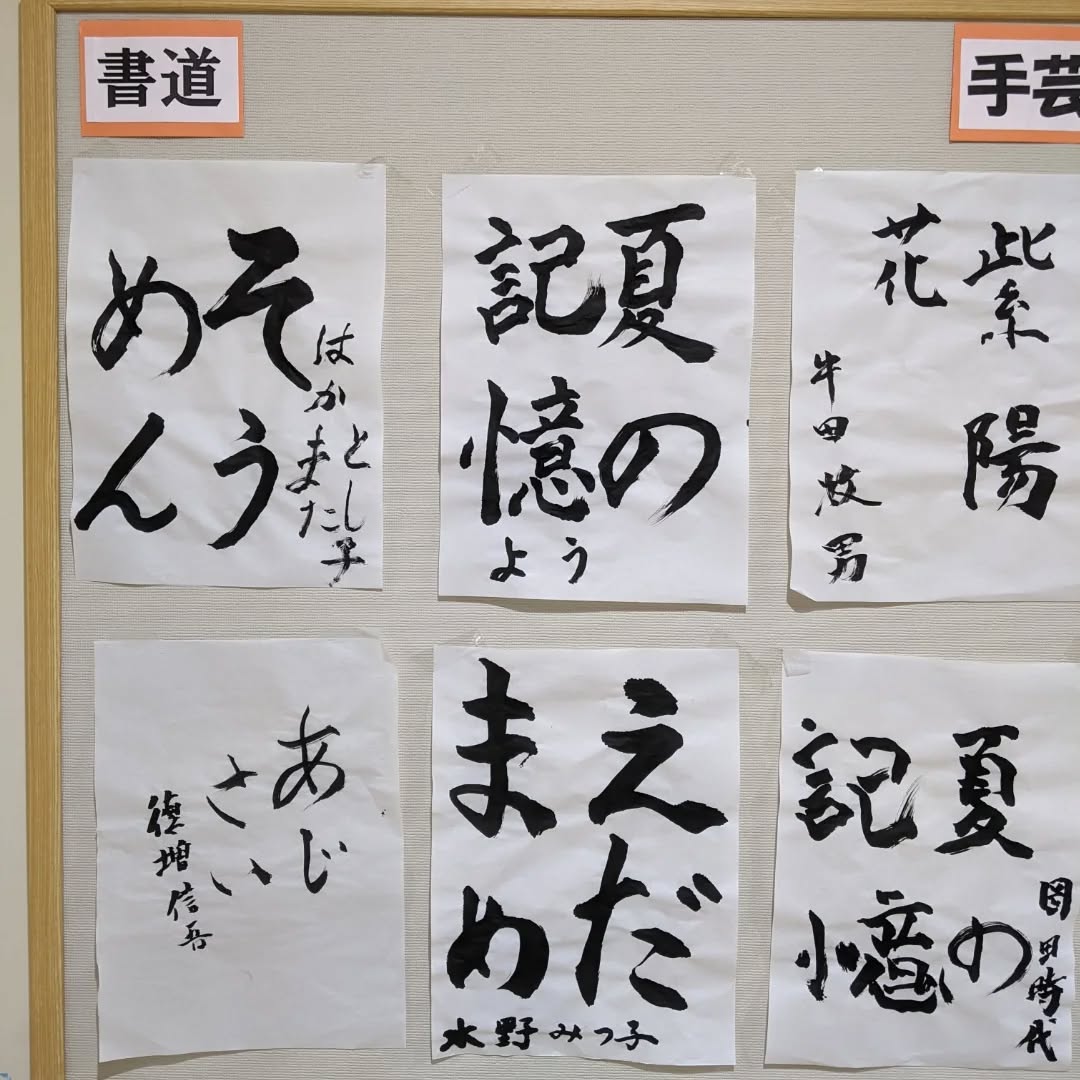 書道
手芸
そう
めん
はかまた
とし子
夏の
記憶
よう
紫陽
花
牛田牧男
あじ
さい
徳増信吾
えだ
まめ
水野みつ子
夏の
記憶
岡田時代